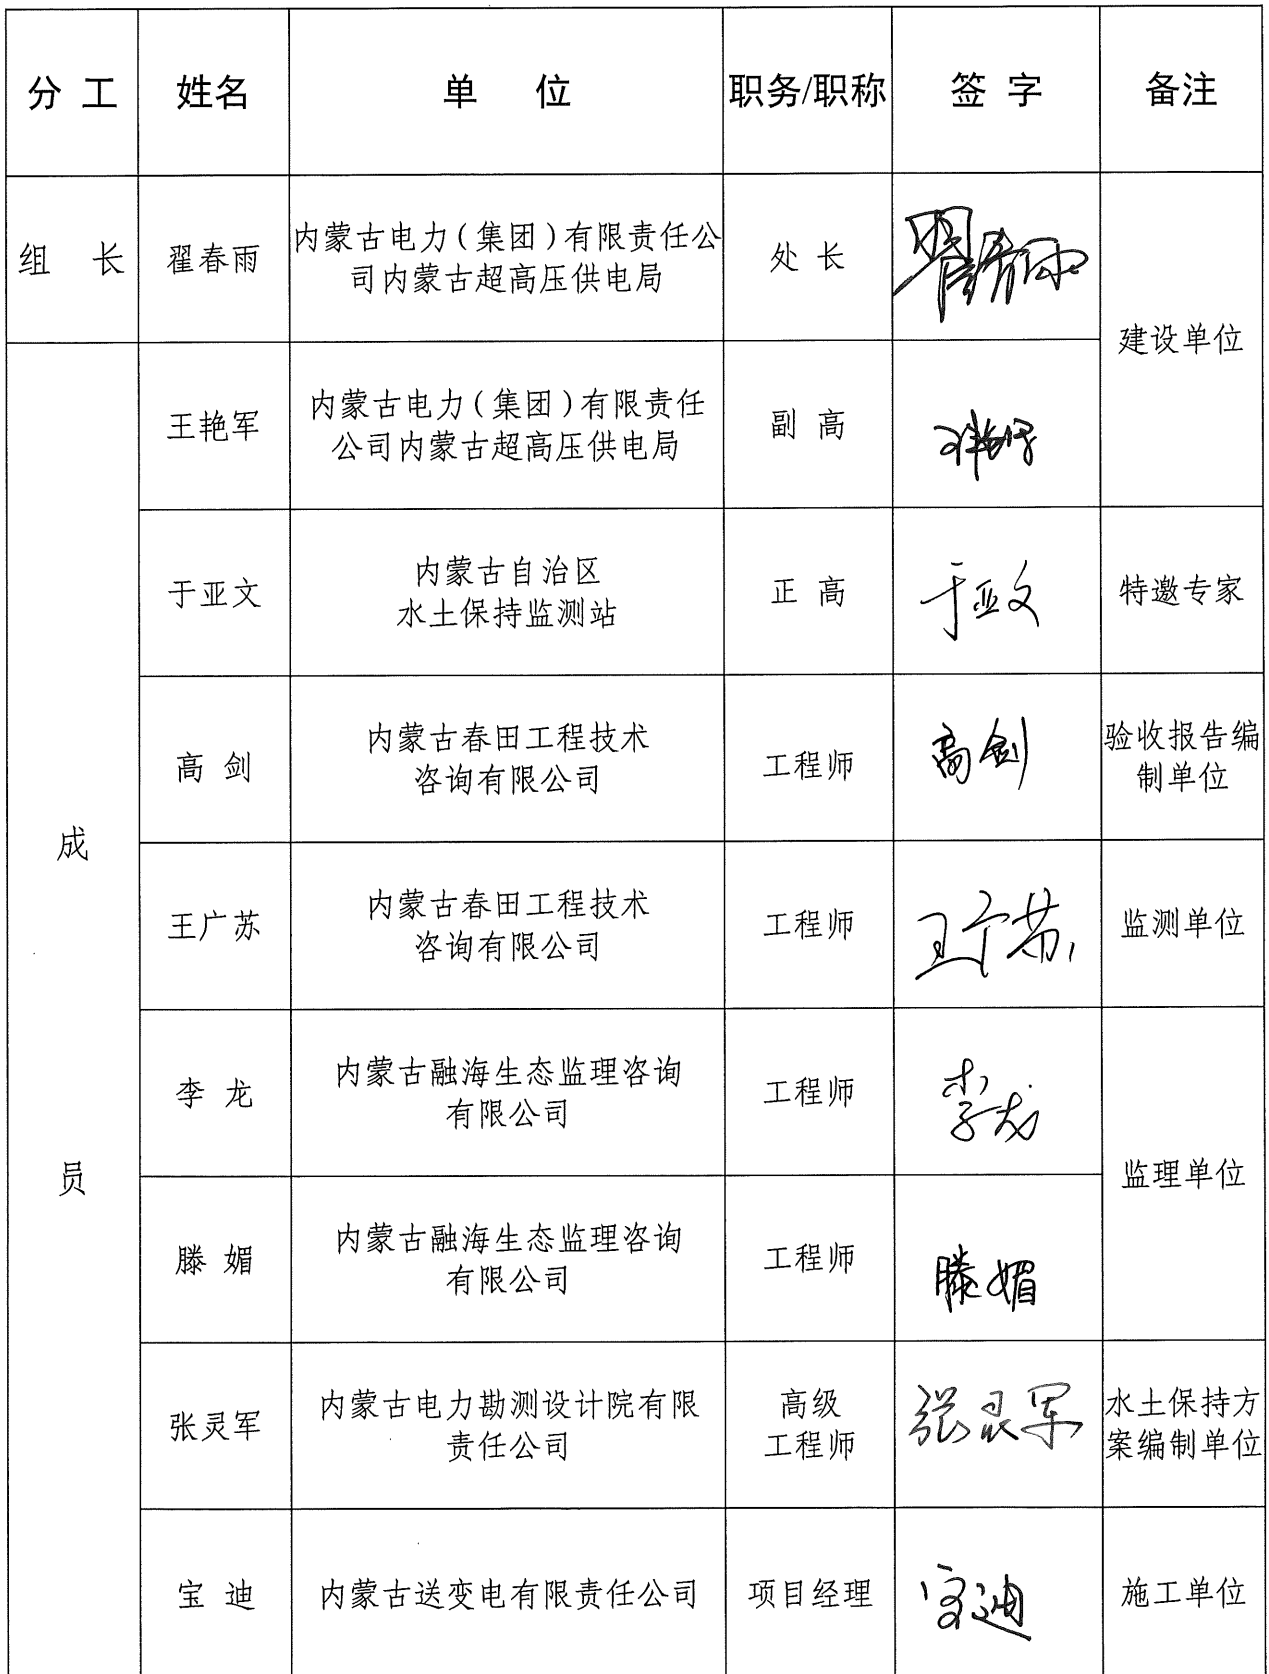 分 工 姓名 单 位 职务/职称 签 字 备注
组 长 翟春雨 内蒙古电力(集团)有限责任公
司内蒙古超高压供电局 处 长 翟春雨
建设单位
王艳军 内蒙古电力(集团)有限责任
公司内蒙古超高压供电局 副 高 王艳军
于亚文 内蒙古自治区
水土保持监测站 正 高 于亚文 特邀专家
高 剑 内蒙古春田工程技术
咨询有限公司 工程师 高剑 验收报告编
制单位
成
王广苏 内蒙古春田工程技术
咨询有限公司 工程师 王广苏 监测单位
李 龙 内蒙古融海生态监理咨询
有限公司 工程师 李龙
员
监理单位
滕 媚 内蒙古融海生态监理咨询
有限公司 工程师 滕媚
张灵军 内蒙古电力勘测设计院有限
责任公司 高级
工程师 张灵军 水土保持方
案编制单位
宝 迪 内蒙古送变电有限责任公司 项目经理 宝迪 施工单位